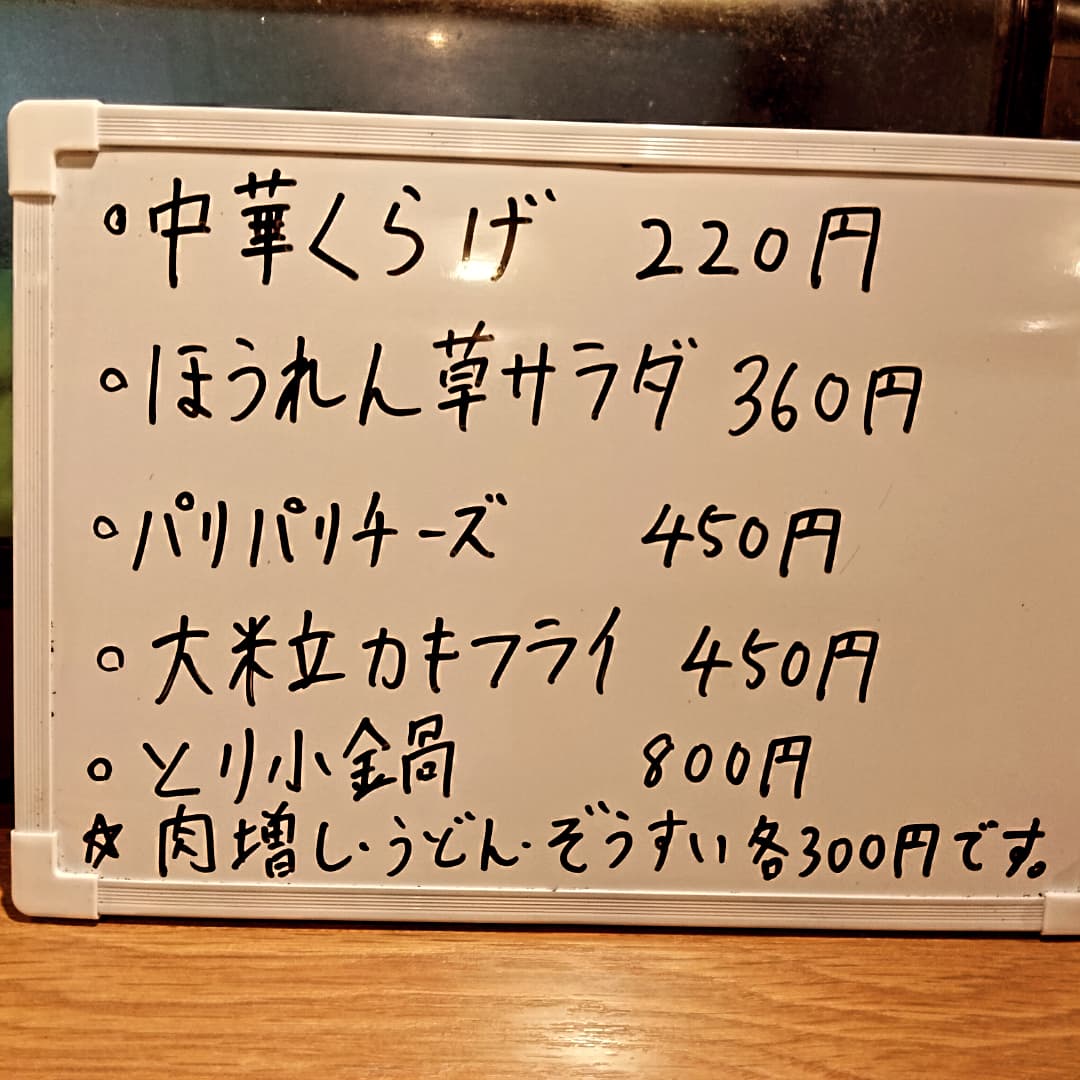 ◦中華くらげ 220円
◦ほうれん草サラダ 360円
◦パリパリチーズ 450円
◦大粒カキフライ 450円
◦とり小鍋 800円
☆肉増し・うどん・ぞうすい各300円です。